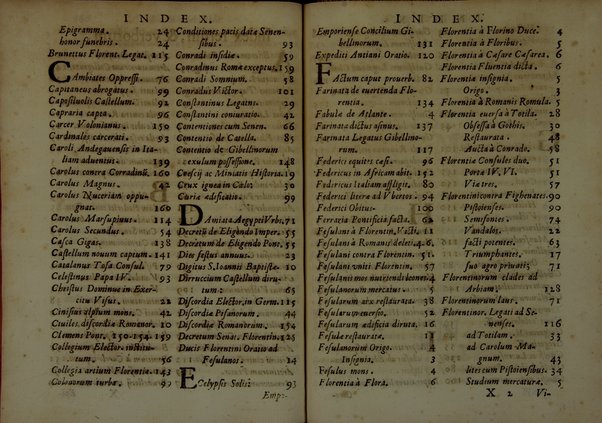 INDEX.
Epigramma. 24
honor funebris. 24
Brunettus Florent. Legat. 115
Cambiates Oppressi. 76
Capitaneus abrogatus. 99
Caposiluolis Castellum. 92
Capraria capta. 96
Carcer Volonianus. 150
Cardinalis carcerati. 93
Caroli Andegauensis in Ita-
liam aduentus. 139
Carolus contra Corradinũ. 160
Carolus Magnus. 42
Carolus Nuceriam oppu-
gnat. 160
Carolus Marsupinus. 114
Carolus Secundus. 54
Casca Gigas. 138
Castellum nouum captum. 141
Catalanus Tosa Consul. 79
Celestinus Papa IV. 93
Christus Dominus in Exer-
citu Visus. 22
Cinisius alptum mons. 42
Ciuiles discordia Romanor. 10
Clemens Pont. 150-154-159
Collegium Elector. institu-
tum. 56
Collegia artium Florentia. 143
Colonorum turba. 92
Conditiones pacis data Senen-
sibus. 93
Conradi insidia. 59
Conradinus Roma exceptus. 159
Conradi Somnium. 58
Conradus Victor. 101
Constantinus Legatus. 29
Constantini coniuratio. 42
Contentiones cum Senen. 66
Contentio de Carolla. 85
Contentio de Gibellinorum
exulum possessione. 148
Coëscij ac Miniatis Historia. 19
Crux ignea in Cælo. 30
Curia ædificatio. 99
Damiata Aegypti Vrbs. 71
Decretũ de Eligendo Imper. 55
Decretum de Eligendo Pont. 55
Dies fastus annuus. 23
Digitus S. Ioannis Baptistæ. 10
Dirruccium Castellum diru-
tum. 86
Discordia Elector. in Germ. 115
Discordia Pisanorum. 44
Discordia Romanorum. 154
Decretum Senat. Florentin. 128
Ducis Mantini Oratio ad
Fesulanos. 14
Eclypsis Solis. 93
Emp-
INDEX.
Emporiense Concilium Gi-
bellinorum. 131
Expediti Antiani Oratio. 120
Factum caput prouerb. 82
Farinata de euertenda Flo-
rentia. 134
Fabulæ de Atlante. 4
Farinata dictus osinus. 137
Farinata Legatus Gibellino-
rum. 117
Federici equites cæsi. 96
Federicus in Africam abit. 152
Federicus Italiam affligit. 80
Federici literæ ad Vbertos. 94
Federici Obitus. 100
Ferraria Pontificia facta. 62
Fesulani à Florentin. Victi. 11
Fesulani à Romanis deleti. 4.6.
Fesulani contra Florentin. 51
Fesulani vniti Florentin. 57
Fesulanis mos nuciscendi bonna. 3
Fesulanorum mercatus. 5
Fesularum arx restaurata. 38
Fesularum euersio. 52
Fesularum ædificia diruta. 16
Fesulæ restaurata. 11
Fesulanorum Origo. 3
Insignia. 3
Fesulus mons. 4
Florentia à Flora. 6
Florentia à Florino Duce. 4
Florentia à Floribus. 5
Florentia à Cæsare Cæsarea. 6
Florentia Fluentia dicta. 6
Florentia insignia. 5
Origo. 3
Florentia à Romanis Romula. 5
Florentia euersa à Totila. 28
Obsessa à Gothis. 30
Restaurata. 48
Aucta à Conrado. 58
Florentia Consules duo. 51
Porta IV, VI. 51
Via tres. 57
Florentini contra Fighenates. 90
Pistoienses. 90
Semifontes. 74
Vandalos. 22
facti potentes. 63
Triumphantes. 17
suo agro priuati. 71
Florentinorum clades ad
Arbiam. 128
Florentinorum laus. 71
Florentinor. Legati ad Se-
nenses. 116
ad Totilam. 33
ad Carolum Ma-
gnum. 43
lites cum Pistoiensibus. 34
Studium mercaturæ. 5
X 2 Vi-